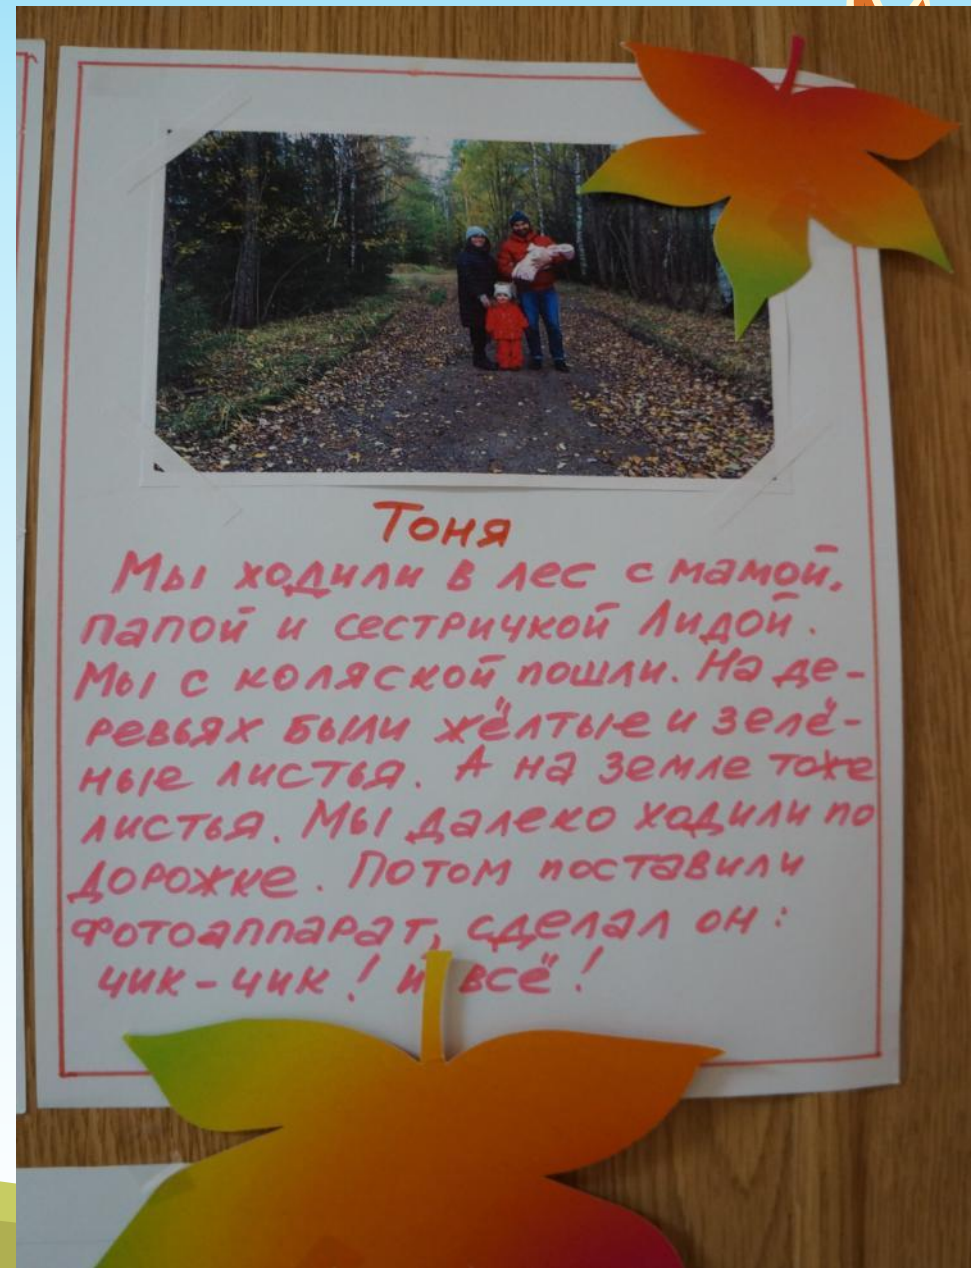 Тоня
Мы ходили в лес с мамой,
папой и сестричкой Лидой.
Мы с коляской пошли. На де-
ревьях были жёлтые и зелё-
ные листья. А на земле тоже
листья. Мы далеко ходили по
дорожке. Потом поставили
фотоаппарат, сделал он:
чик-чик! и всё!